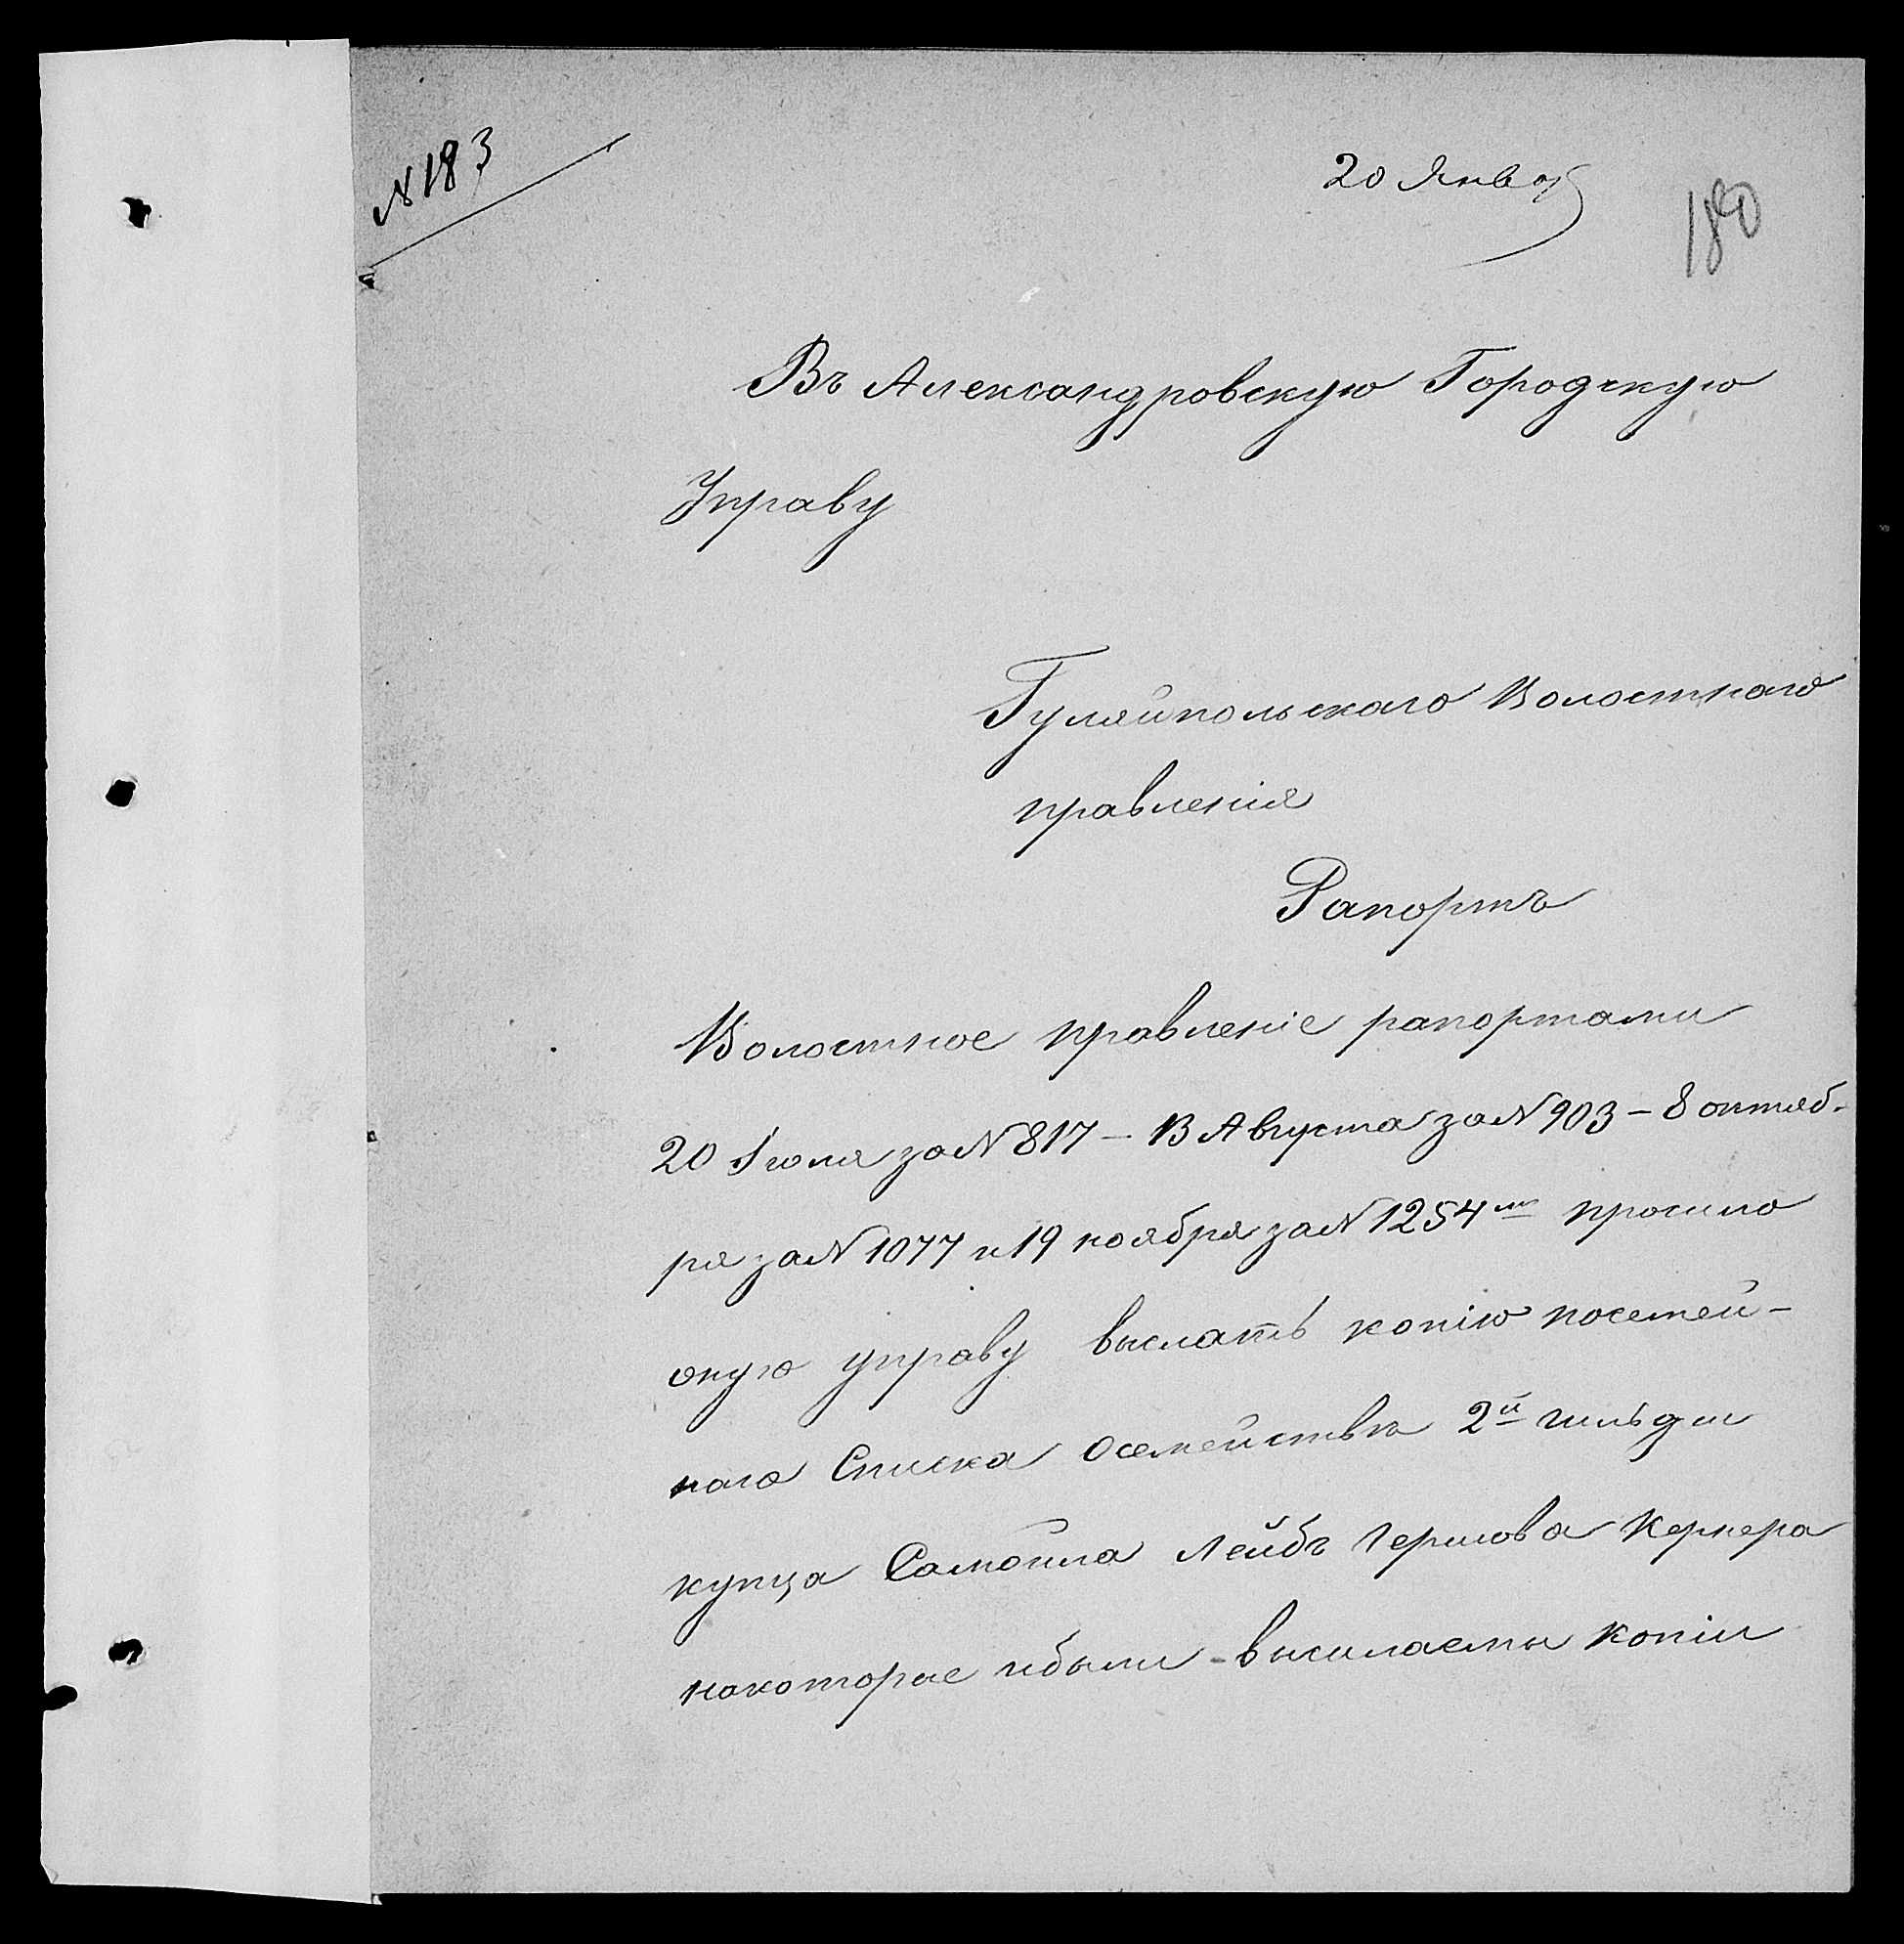 № 183
20 Январ
180
Въ Александровскую Городскую
Управу
Гуляйпольскаго Волостнаго
правленія
Рапортъ
Волостное правленіе рапортами
20 Іюля за № 817 – 13 Августа за № 903 – 8 октяб-
ря за № 1077 и 19 ноября за № 1254мъ просило
оную управу выслать копію посемей-
наго Списка осемействѣ 2й гильдіи
купца Самоила Лейбъ Гершова Кернера
накоторые небыли высылаемы копіи